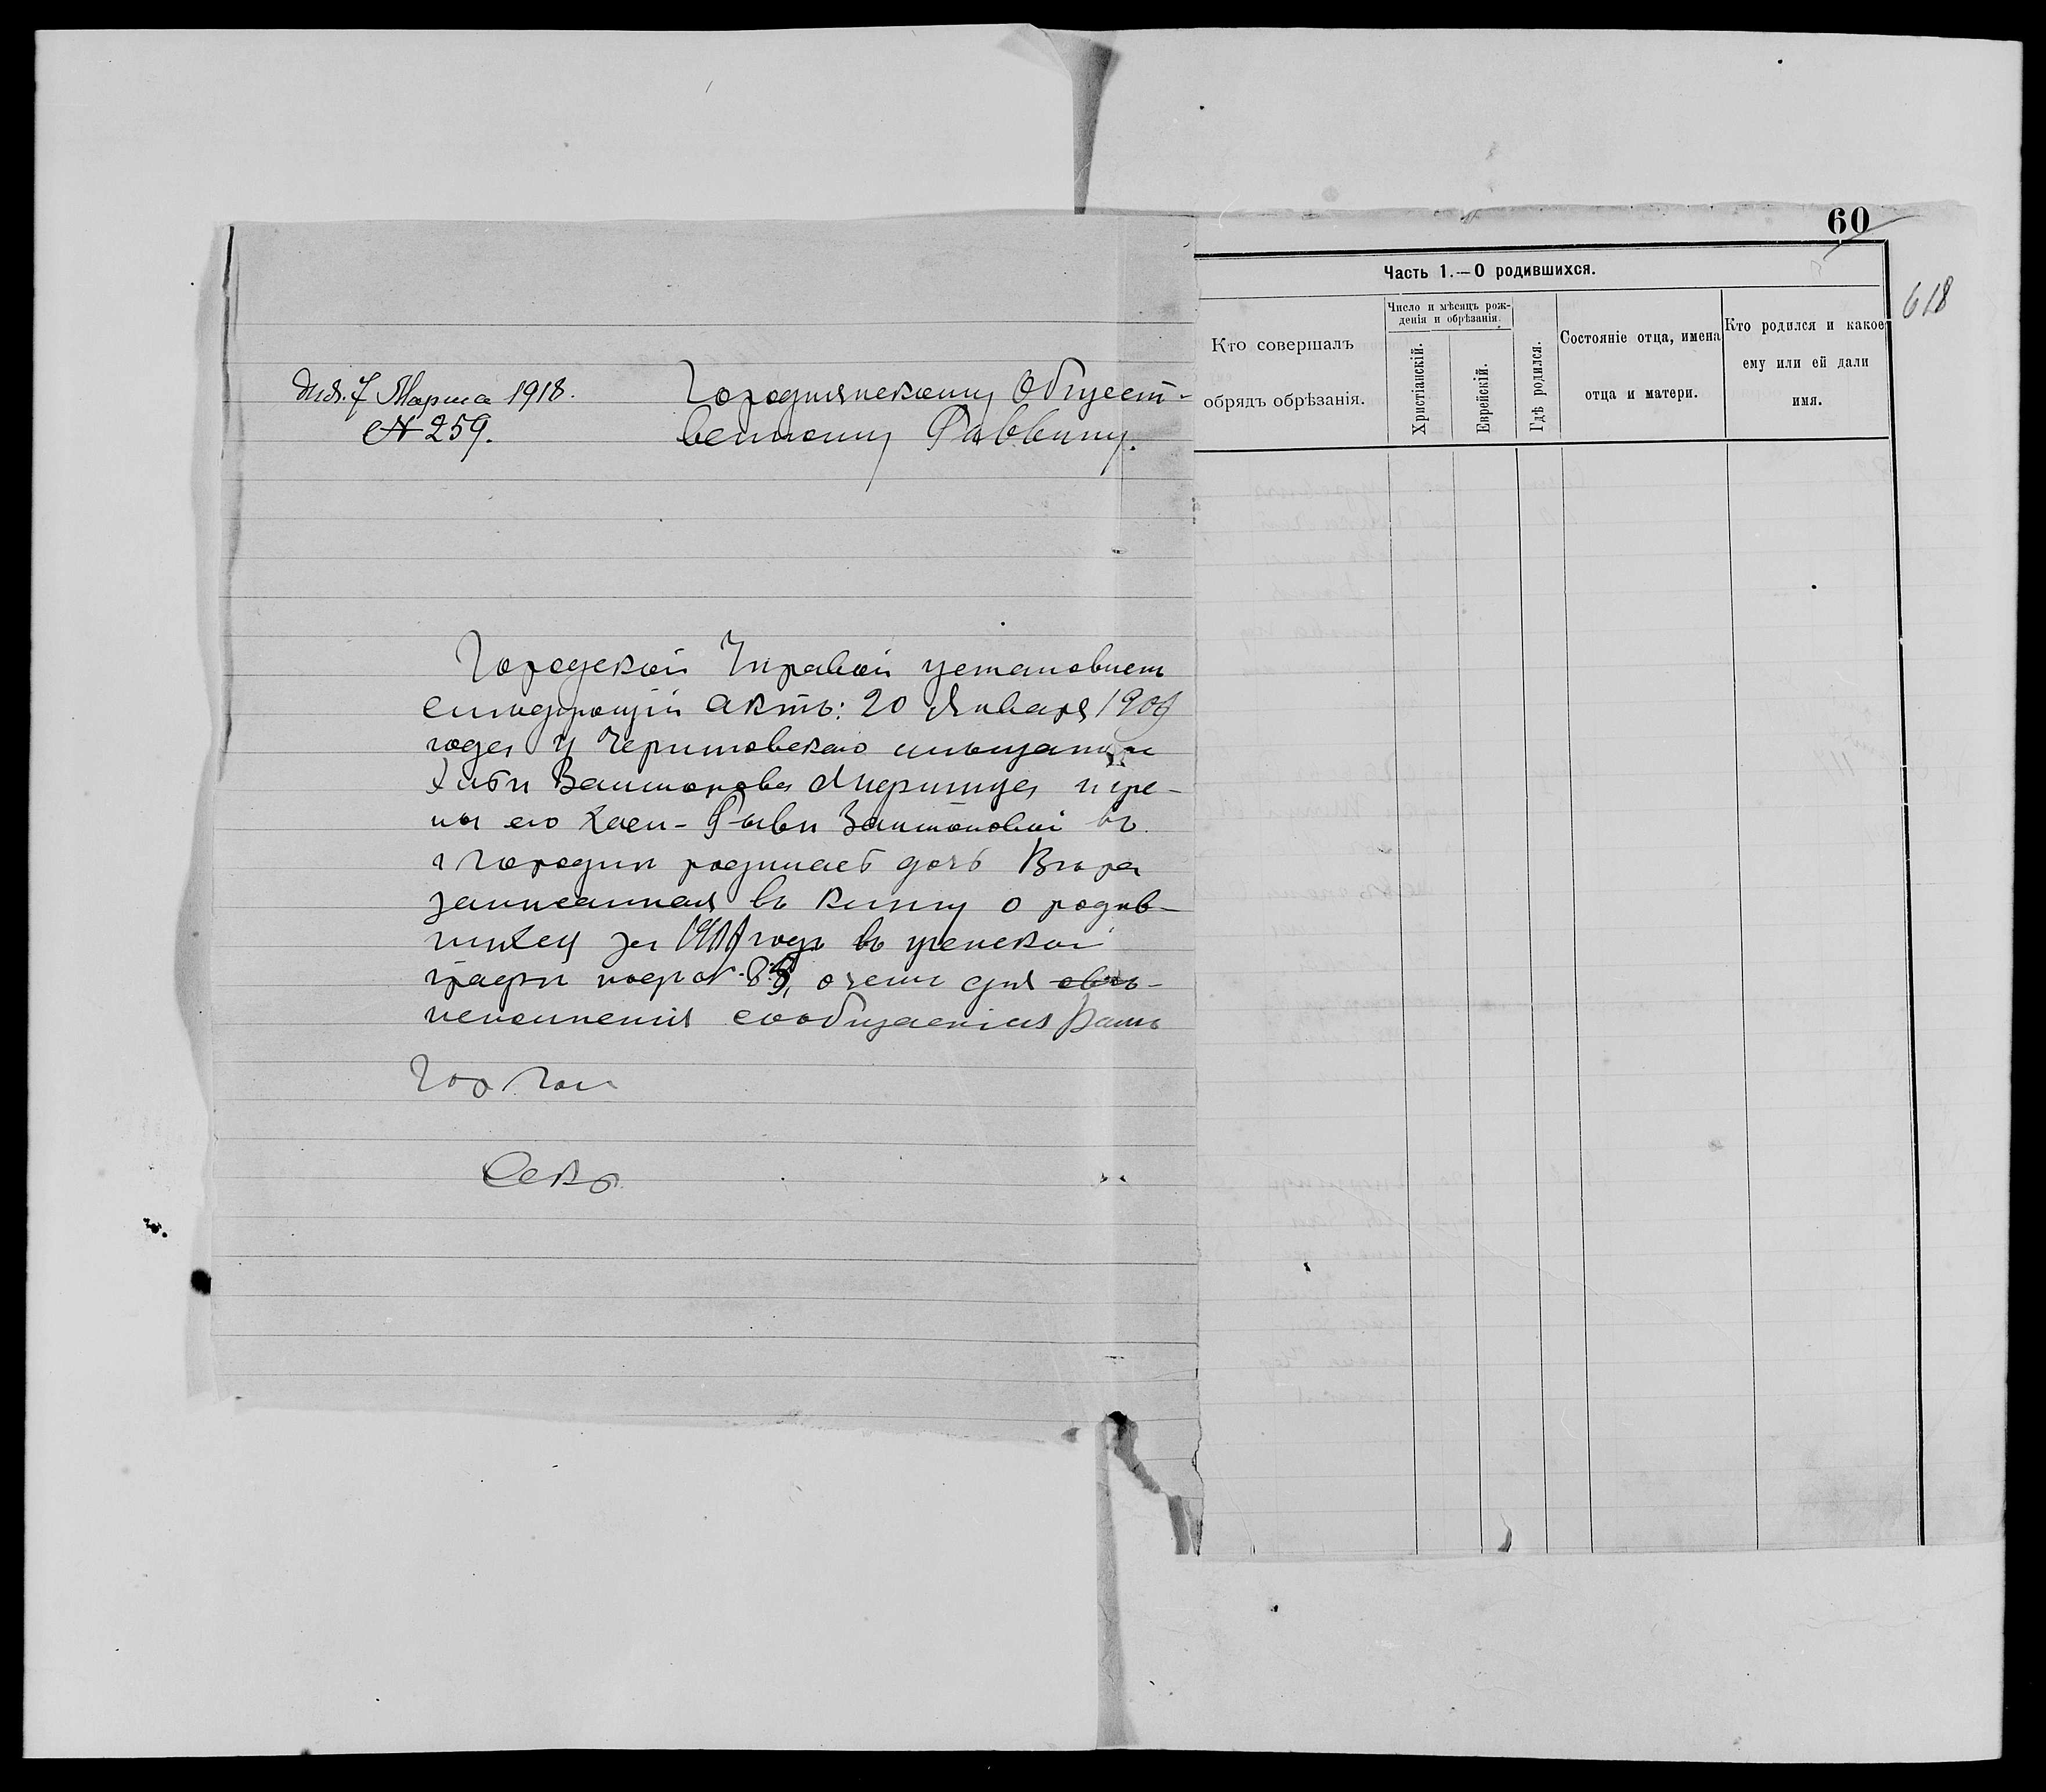 дня. 7 Марта 1918.
№ 259.
Городнянскому Общест-
венному Раввину.
Городской Управой установлен
слѣдующій актъ: 20 Января 1909
года у Черниговскаго мѣщанина
Залмонова и же-
ны его Хаси- Залмоновой въ
г Городнѣ родилась дочь Вѣра
записанная въ книгу о родив-
шихся за годъ въ женской
графѣ подъ № о чемъ для
исполненія сообщается Вамъ
Гор Гол
Секр
60
618
Часть 1.—О родившихся.
Кто совершалъ
обрядъ обрѣзанія.
Число и мѣсяцъ рож-
денія и обрѣзанія.
Христіанскій.
Еврейскій.
Гдѣ родился.
Состояніе отца, имена
отца и матери.
Кто родился и какое
ему или ей дали
имя.